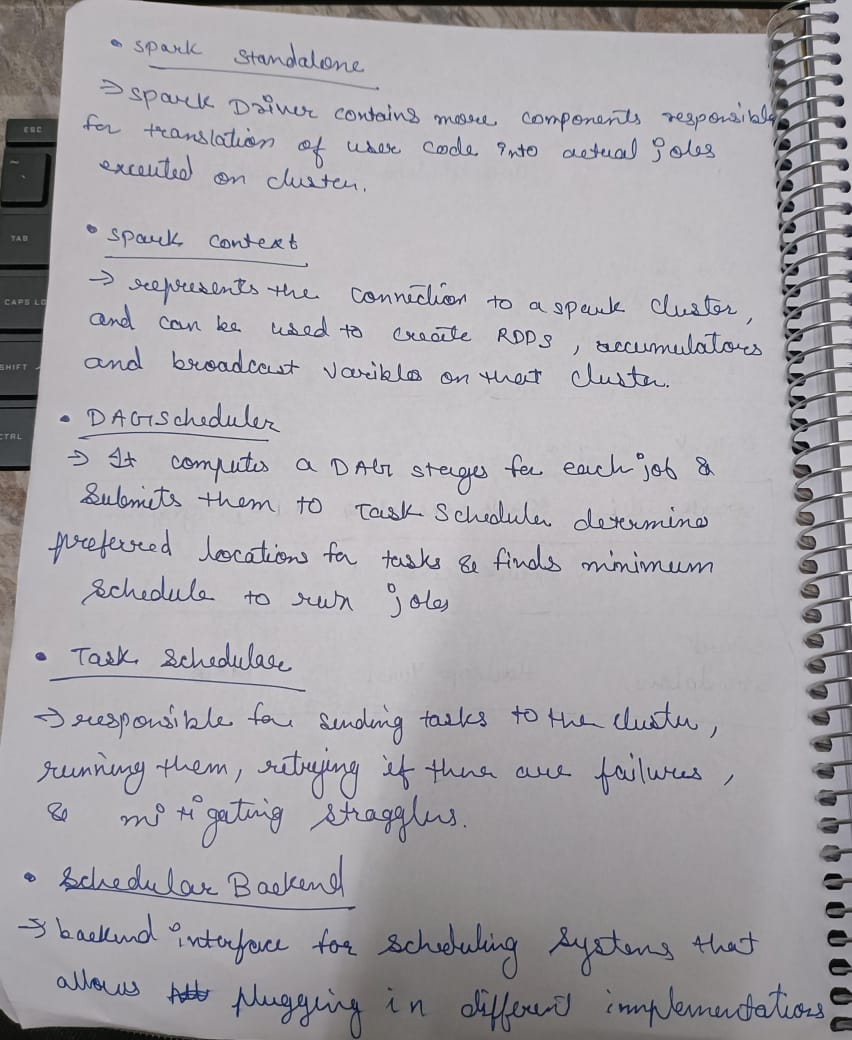 ESC
~
TAB
CAPS LO
SHIFT
CTRL
• Spark Standalone
→ Spark Driver contains more components responsible
for translation of user code into actual jobs
executed on cluster.
• Spark context
→ represents the connection to a spark cluster,
and can be used to create RDDs, accumulators
and broadcast varibles on that cluster.
• DAGScheduler
→ It computes a DAG stages for each job &
Submits them to Task Scheduler determine
preferred locations for tasks & finds minimum
schedule to run jobs
• Task Schedular
→ responsible for sending tasks to the cluster,
running them, retrying if there are failures,
& mitigating stragglers.
• Schedular Backend
→ backend interface for scheduling systems that
allows plugging in different implementations